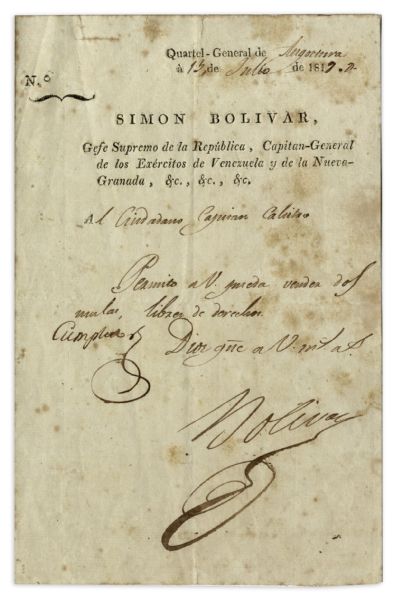 Quartel-General de Angostura
à 15 de Julio de 1817.
N.º
SIMON BOLIVAR,
Gefe Supremo de la República, Capitan-General
de los Exércitos de Venezuela y de la Nueva-
Granada, &c., &c., &c.
Al Ciudadano
Permito a V. pueda vender dos
mulas, libres de derechos.
Dios gue a V. ms. as.
Bolivar